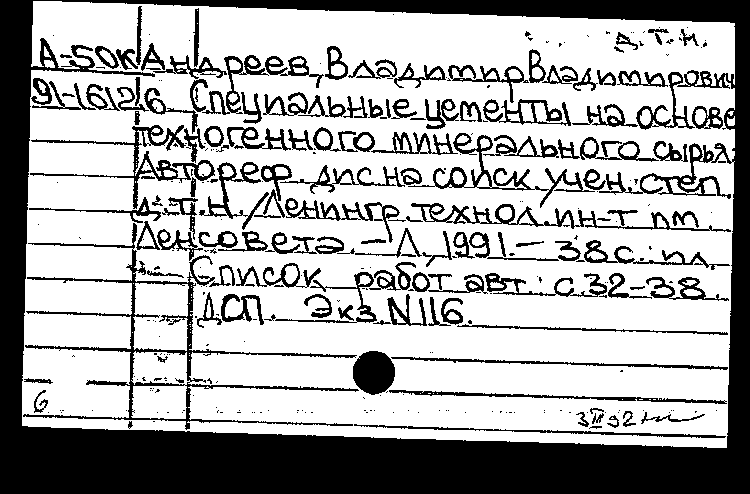 Д.Т.Н.
А-50К Андреев, Владимир Владимирович
91-16126 Специальные цементы на основе
техногенного минерального сырья:
Автореф. дис. на соиск. учен. степ.
д.т.н. /Ленингр. технол. ин-т им.
Ленсовета. – Л, 1991. – 38 с.: ил.
Список работ авт.: с. 32-38.
ДСП. Экз. N116.
6
3 III 92